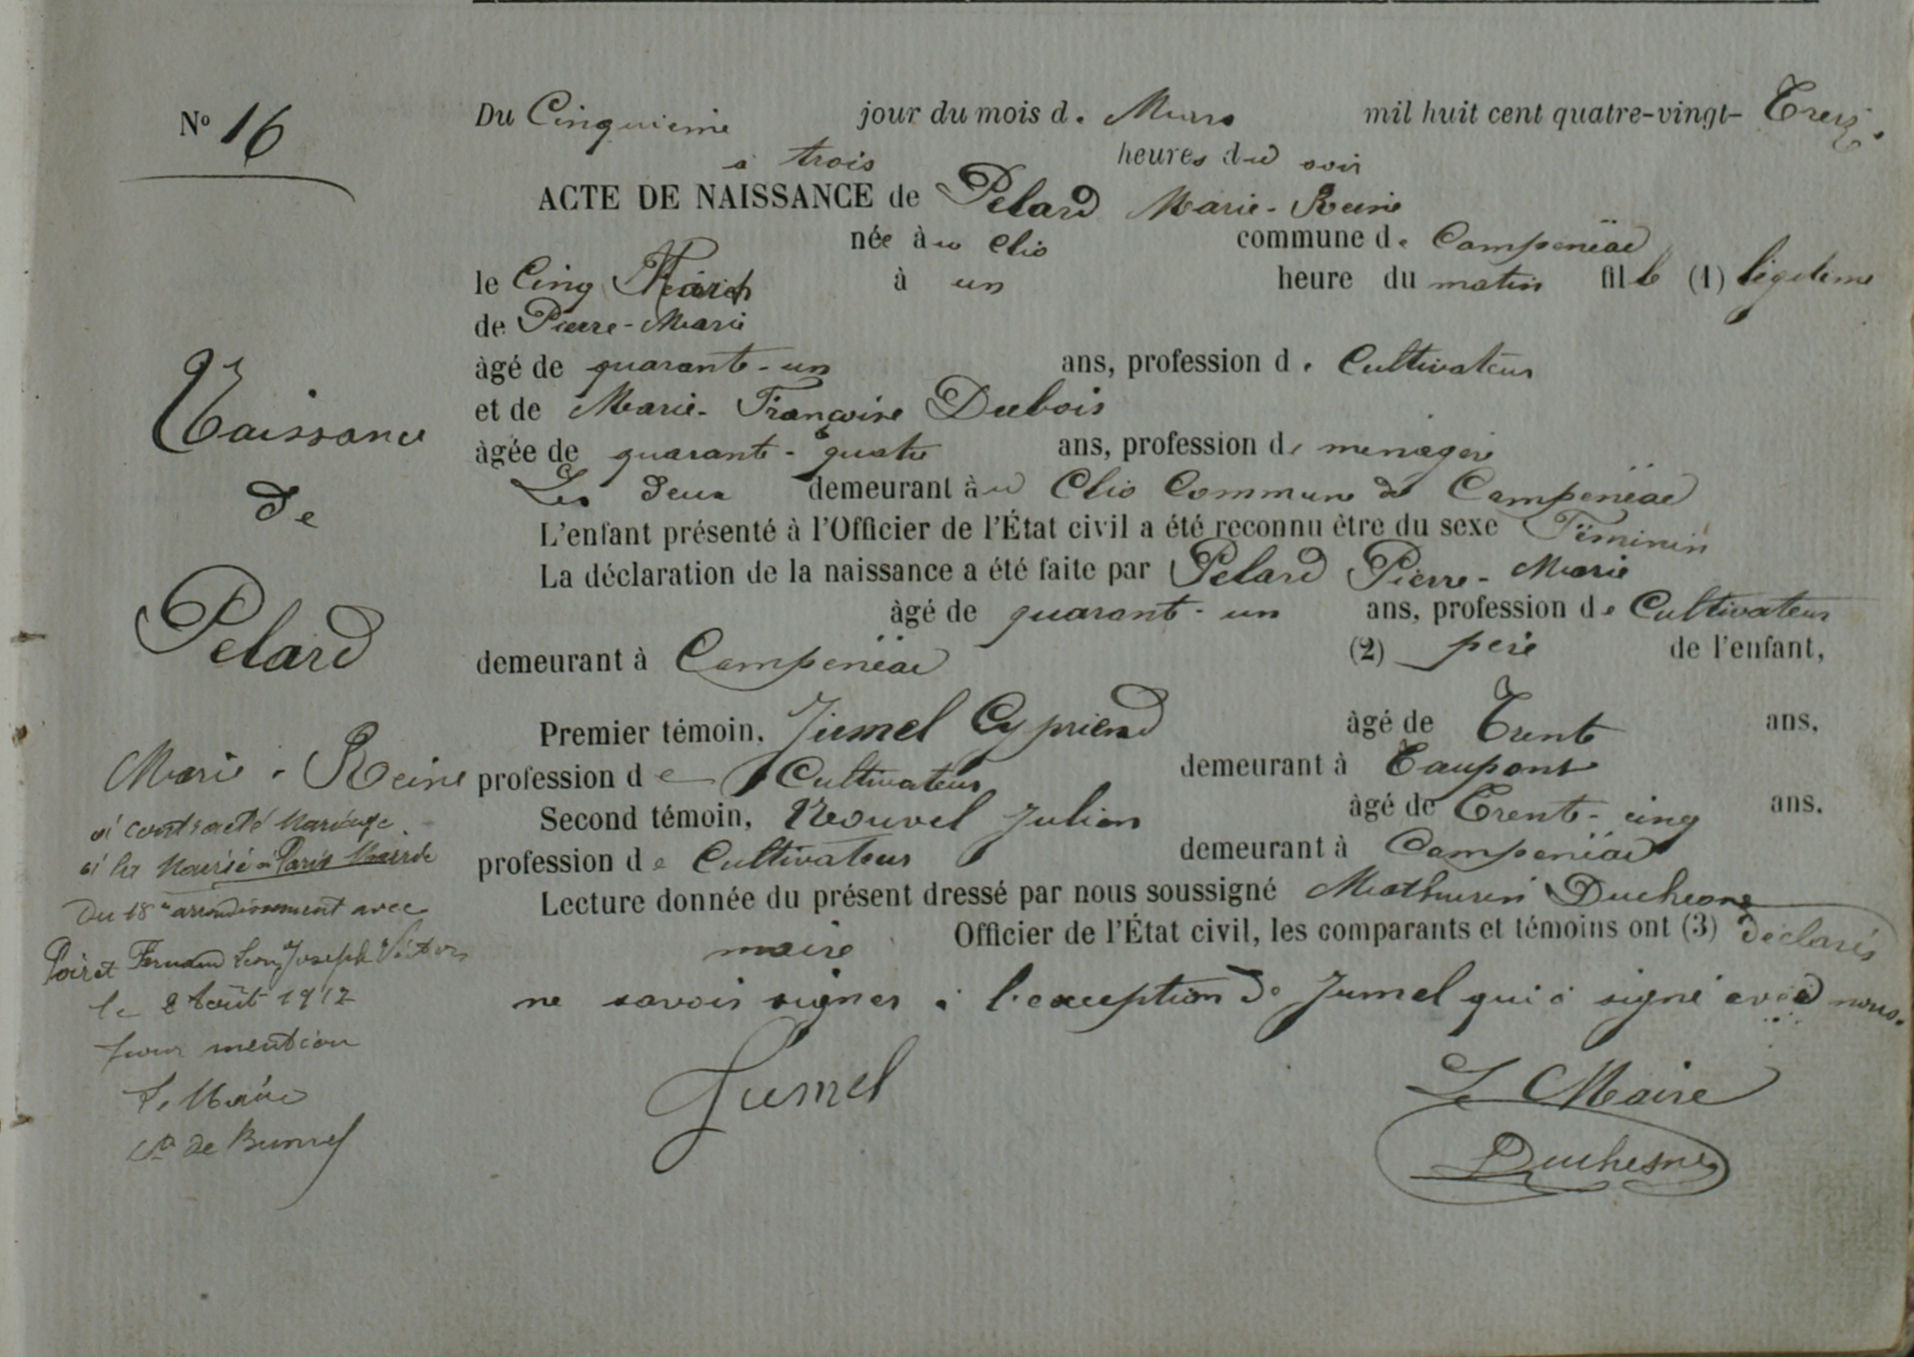 N° 16
Naissance
de
Pelard
Marie-Reine
a contracté mariage
à la Mairie à Paris Mairie
du 18e arrondissement avec
Poiret Fernand Léon Joseph Victor
le 8 Août 1912
pour mention
Le Maire
Du Cinquième jour du mois de Mars mil huit cent quatre-vingt-Treize
à trois heures du soir
ACTE DE NAISSANCE de Pelard Marie-Reine
née au Clio commune de Campénéac
le Cinq Mars à un heure du matin fille (1) légitime
de Pierre-Marie
âgé de quarante-un ans, profession de Cultivateur
et de Marie-Françoise Dubois
âgée de quarante-quatre ans, profession de ménagère
Les deux demeurant au Clio Commune de Campénéac
L'enfant présenté à l'Officier de l'État civil a été reconnu être du sexe Féminin
La déclaration de la naissance a été faite par Pelard Pierre-Marie
âgé de quarante-un ans, profession de Cultivateur
demeurant à Campénéac (2) père de l'enfant,
Premier témoin, Jumel Cyprien âgé de Trente ans,
profession de Cultivateur demeurant à Taupont
Second témoin, Nouvel Julien âgé de Trente-cinq ans.
profession de Cultivateur demeurant à Campénéac
Lecture donnée du présent dressé par nous soussigné Mathurin Duchesne
maire Officier de l'État civil, les comparants et témoins ont (3) déclarés
ne savoir signer à l'exception de Jumel qui a signé avec nous.
Jumel
Le Maire
Duchesne